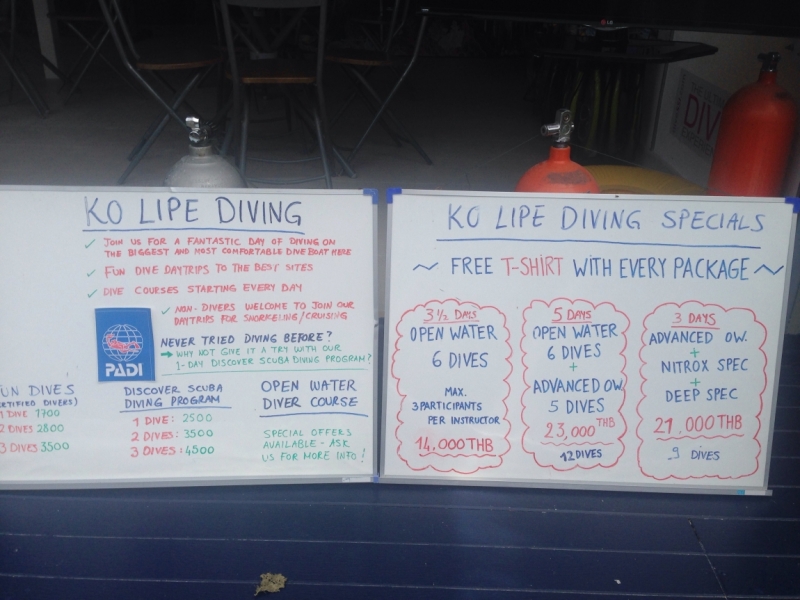 LG
DIV
KO LIPE DIVING
✓ JOIN US FOR A FANTASTIC DAY OF DIVING ON
THE BIGGEST AND MOST COMFORTABLE DIVE BOAT HERE
✓ FUN DIVE DAYTRIPS TO THE BEST SITES
✓ DIVE COURSES STARTING EVERY DAY
✓ NON-DIVERS WELCOME TO JOIN OUR
DAYTRIPS FOR SNORKELING/CRUISING
PADI
NEVER TRIED DIVING BEFORE?
→ WHY NOT GIVE IT A TRY WITH OUR
1-DAY DISCOVER SCUBA DIVING PROGRAM?
UN DIVES
ERTIFIED DIVERS)
1 DIVE 1700
2 DIVES 2800
3 DIVES 3500
DISCOVER SCUBA
DIVING PROGRAM
1 DIVE: 2500
2 DIVES: 3500
3 DIVES: 4500
OPEN WATER
DIVER COURSE
SPECIAL OFFERS
AVAILABLE - ASK
US FOR MORE INFO!
KO LIPE DIVING SPECIALS
~ FREE T-SHIRT WITH EVERY PACKAGE ~
3 1/2 DAYS
OPEN WATER
6 DIVES
MAX.
3 PARTICIPANTS
PER INSTRUCTOR
14,000 THB
5 DAYS
OPEN WATER
6 DIVES
+
ADVANCED OW.
5 DIVES
23,000 THB
12 DIVES
3 DAYS
ADVANCED OW.
+
NITROX SPEC
+
DEEP SPEC
21.000 THB
9 DIVES